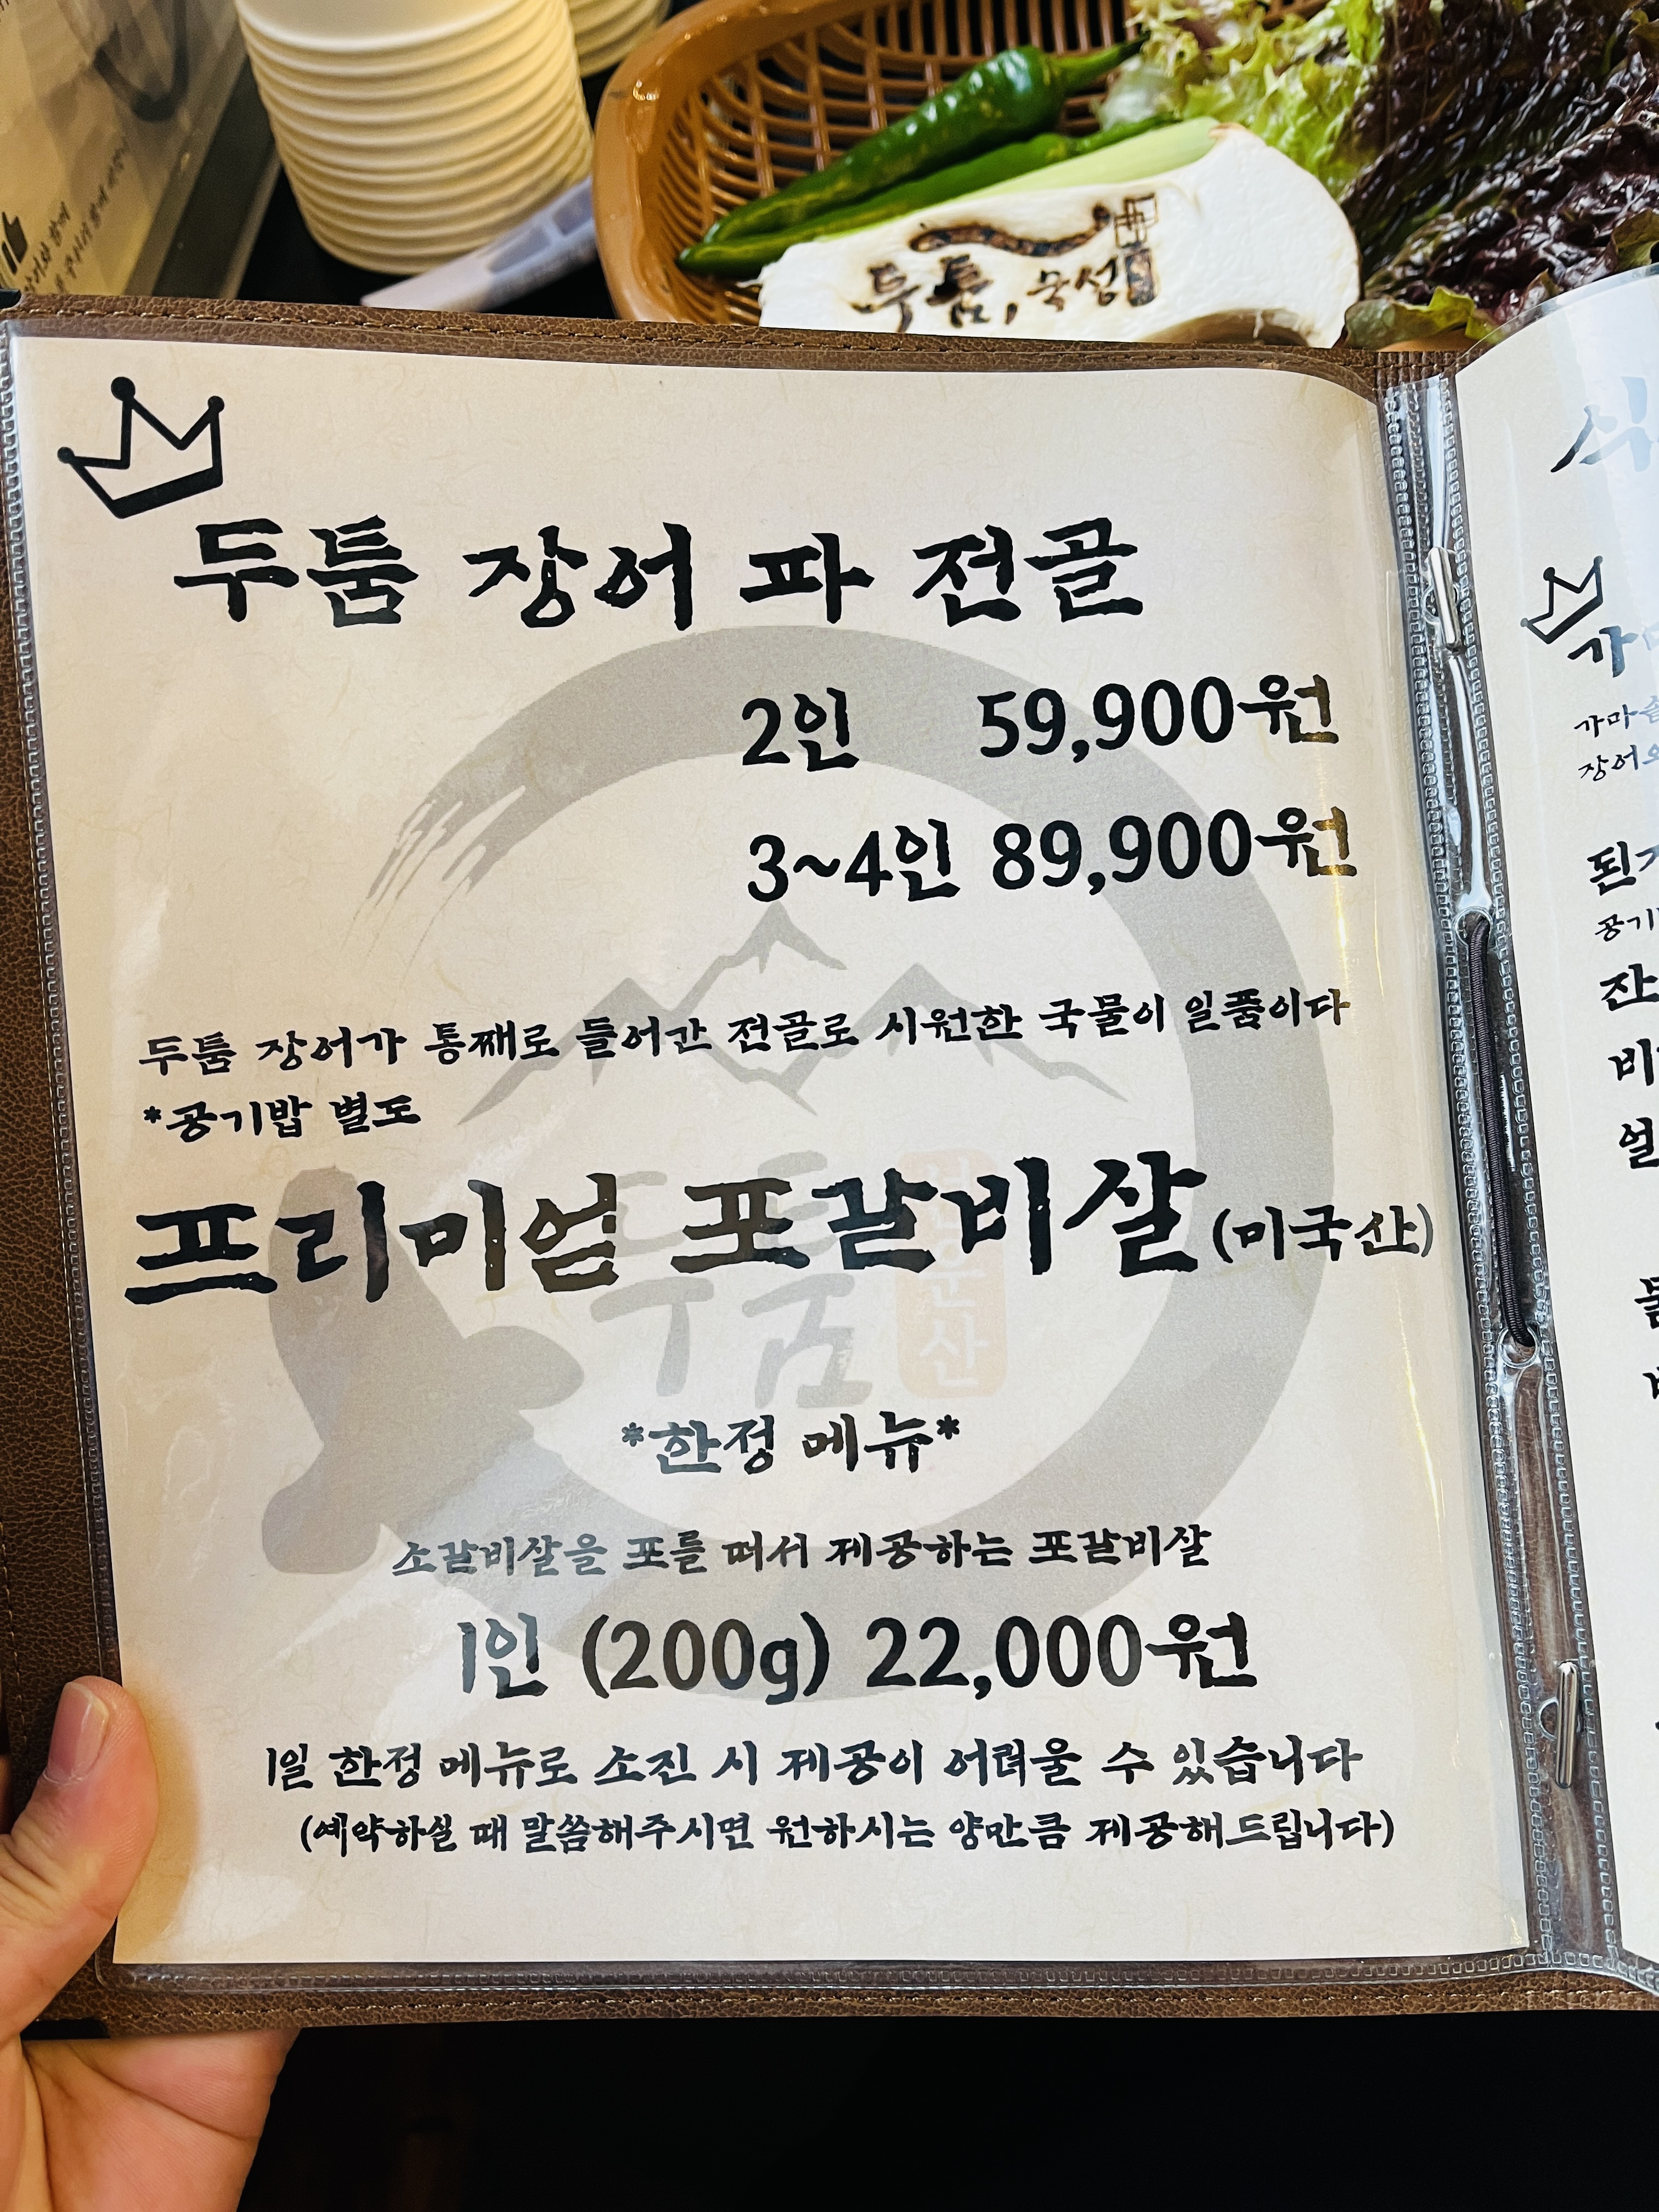 두툼, 숙성
두툼 장어 파 전골
2인 59,900원
3~4인 89,900원
두툼 장어가 통째로 들어간 전골로 시원한 국물이 일품이다
*공기밥 별도
프리미엄 포갈비살(미국산)
두툼
*한정 메뉴*
소갈비살을 포를 떠서 제공하는 포갈비살
1인 (200g) 22,000원
1일 한정 메뉴로 소진 시 제공이 어려울 수 있습니다
(예약하실 때 말씀해주시면 원하시는 양만큼 제공해드립니다)
가마솥
장어
공기
잔
비
얼